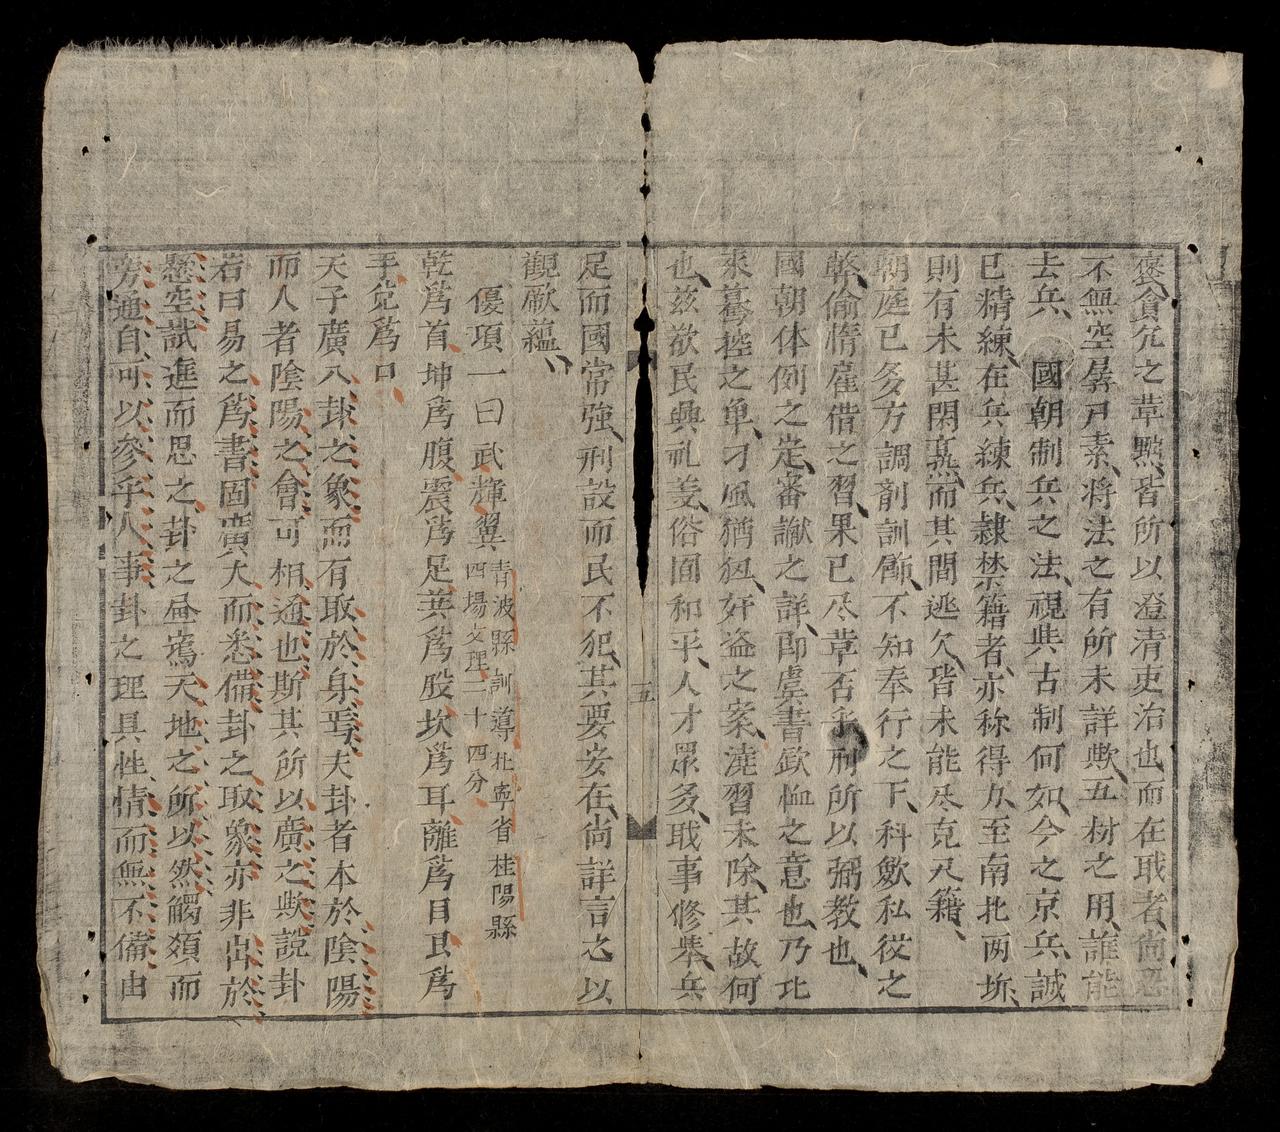 褒貪冗之草黜皆所以澄清吏治也而在戢者尚
不無空孱尸素將法之有所未詳歟五材之用誰能
去兵國朝制兵之法視與古制何如今之京兵誠
已精練在兵練兵隷禁籍者亦称得力至南北両圻
則有未甚閑𤍠而其間逃欠皆未能尽克尺籍
朝庭已多方調劑訓飭不知奉行之下科斂私役之
弊偷惰雇借之習果已尽革否乎刑所以弼教也
國朝体例之定審讞之詳即虞書欽恤之意也乃北
來驀控之单刁風猶𫝊奸盗之案澆習未除其故何
也玆欲民興礼羑俗固和平人才眾多戢事修舉兵
足而國常強刑設而民不犯其要安在尚詳言之以
觀厥蘊
優項一曰武輝翼青波縣訓導北寧省桂陽縣
四場文理二十四分
乾為首坤為腹震為足巽為股坎為耳離為目艮為
手兌為口
天子廣八卦之象而有取於身焉夫卦者本於陰陽
而人者陰陽之會可相通也斯其所以廣之歟說卦
若曰易之為書固廣大而悉備卦之取象亦非出於
懸空試進而思之卦之昼寫天地之所以然觸類而
旁通自可以參乎人事卦之理具性情而無不備由
五